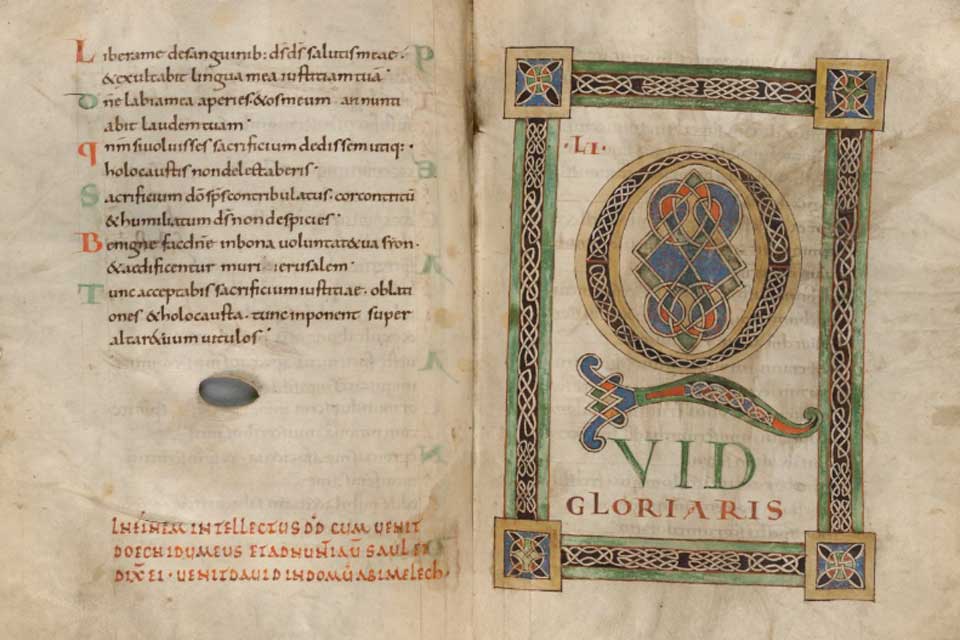 Liberame desanguinib: d̅s d̅s salutis meae·
& exultabit lingua mea iustitiam tuā·
D̅ne labia mea aperies· & os meum annunti
abit laudem tuam·
Qn̅m si uoluisses sacrificium dedissem utiq:·
holocaustis non delectaberis·
Sacrificium d̅o sp̅s contribulatus· cor contritū
& humiliatum d̅s non despicies·
Benigne fac dn̅e in bona uoluntate tua syon·
& aedificentur muri ierusalem·
Tunc acceptabis sacrificium iustitiae· oblati
ones & holocausta· tunc inponent super
altare tuum uitulos·
IN FINEM INTELLECTUS D̅D̅ CUM UENIT
DOECH IDUMEUS ET ADNUNTIAU̅ SAUL ET
DIX̅ EI· UENIT DAUID IN DOMŪ ABIMELECH·
·LI·
QVID
GLORIARIS